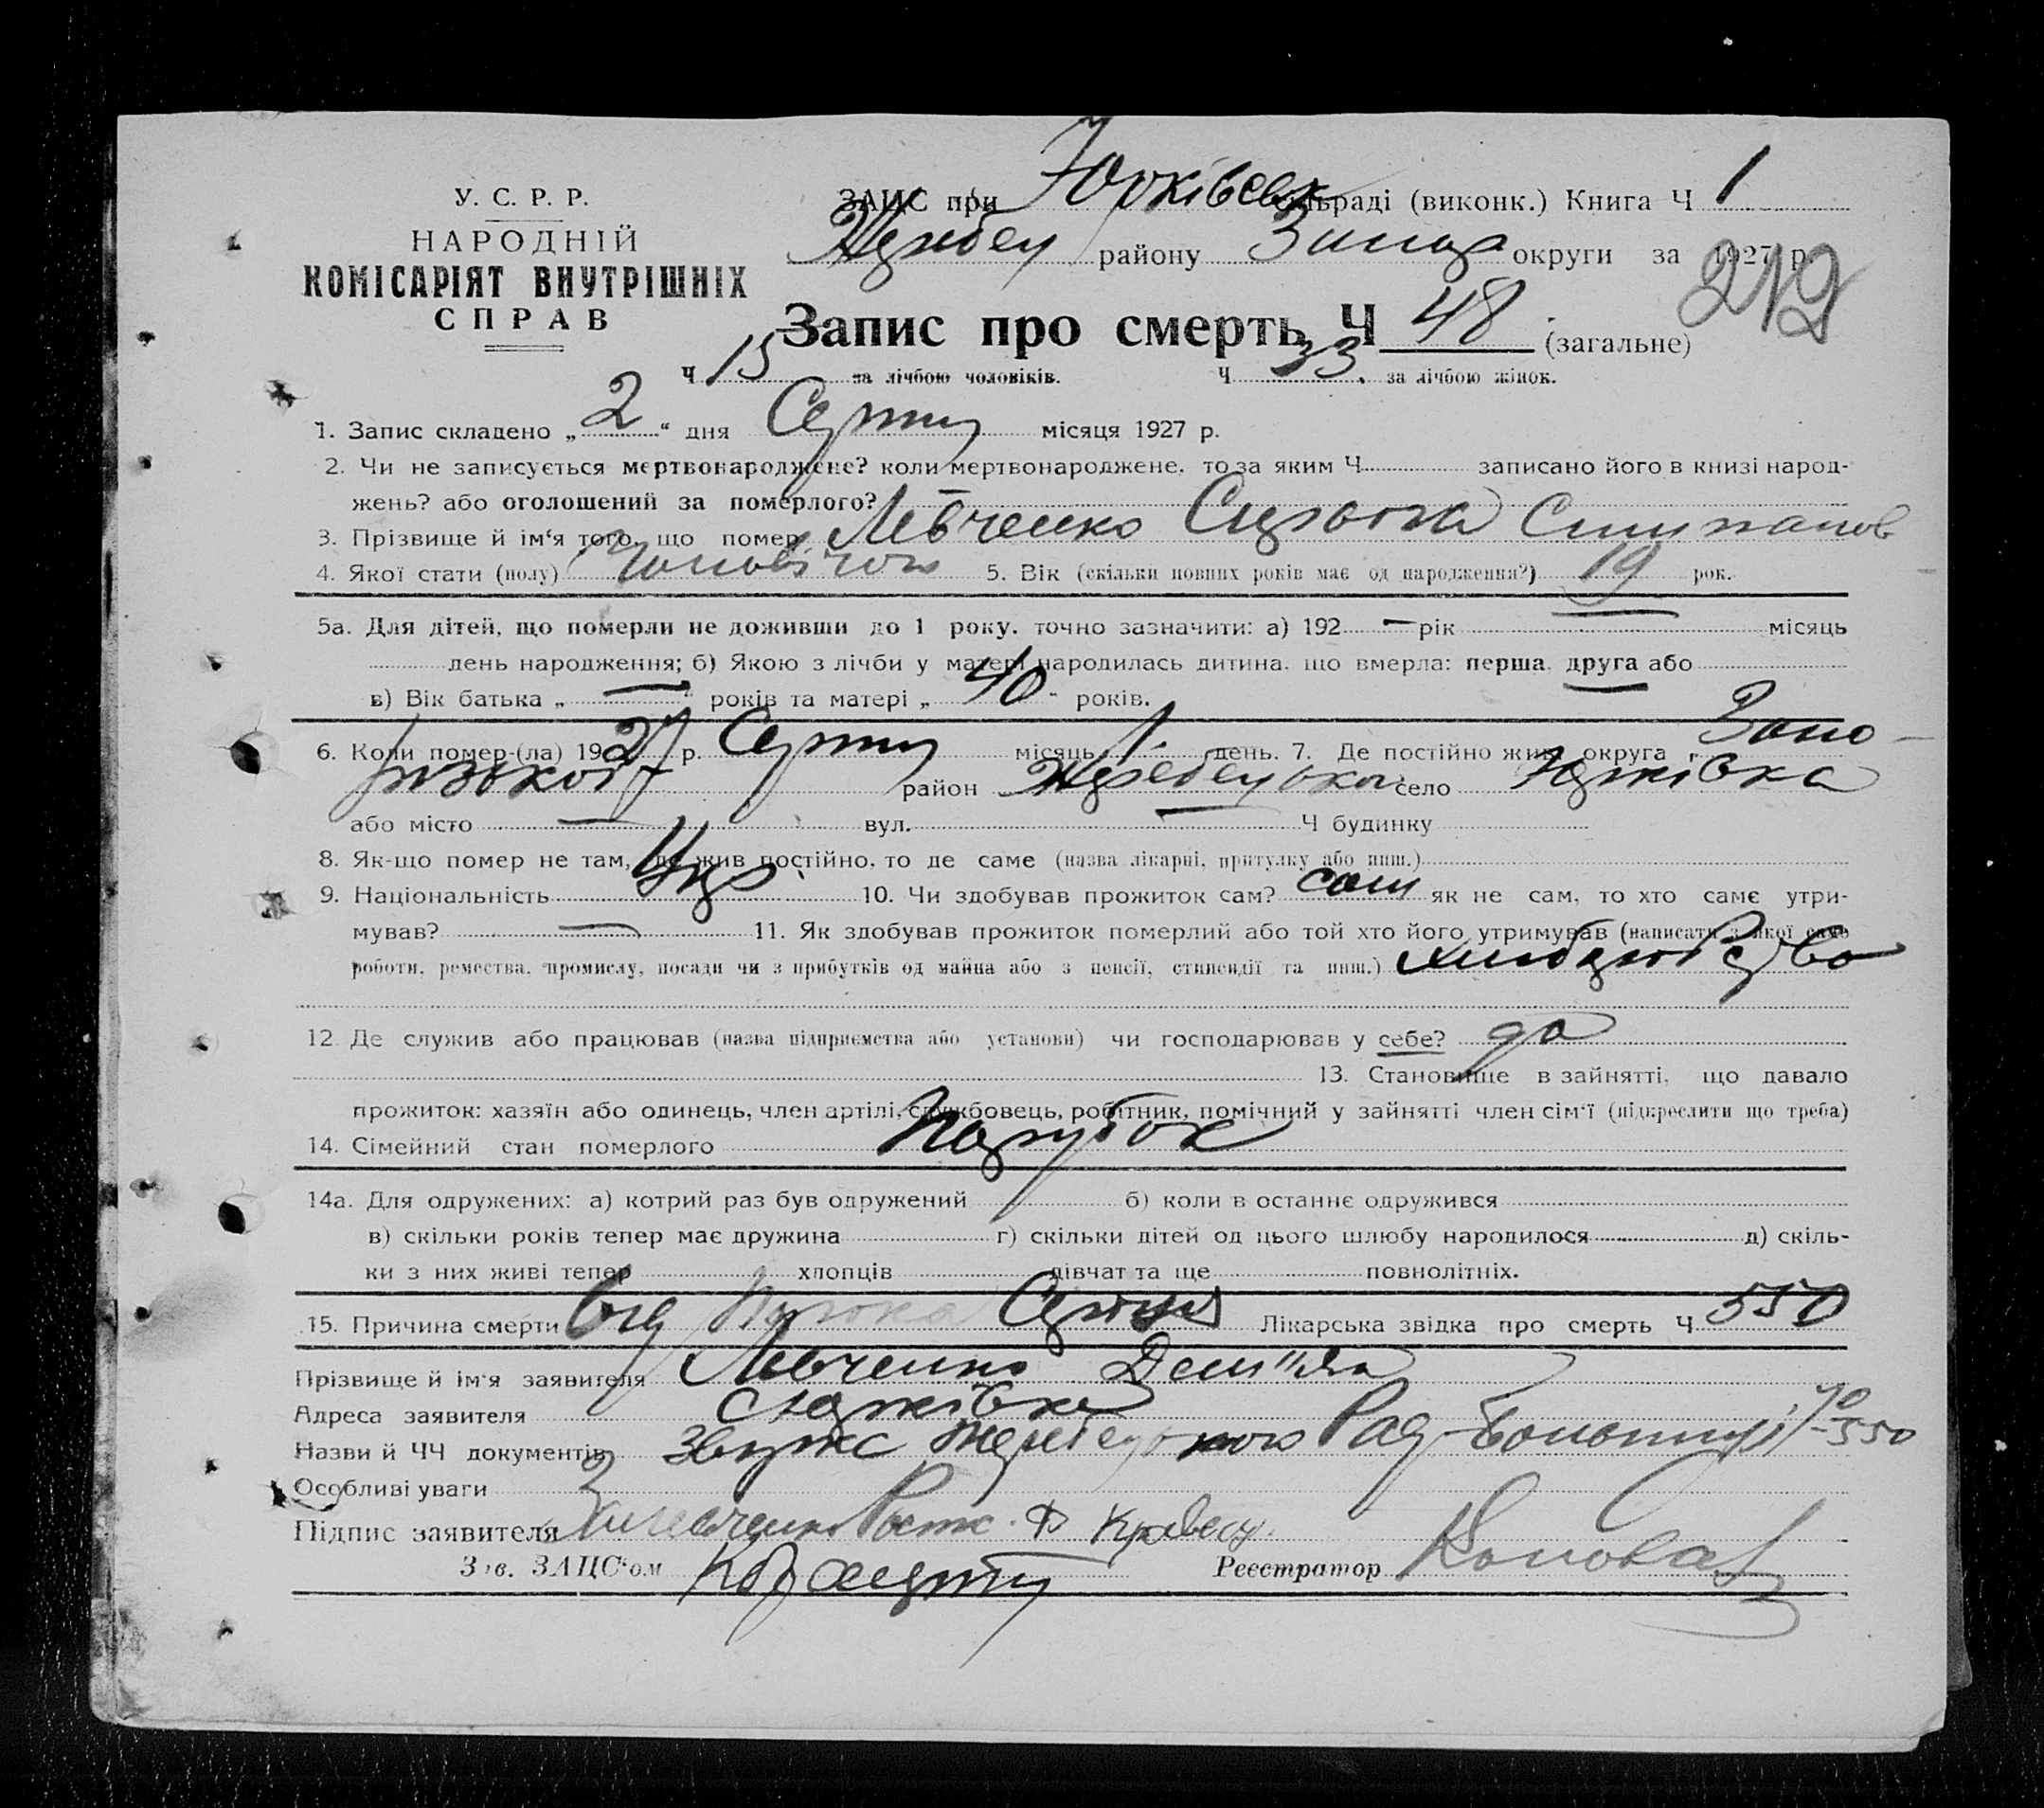 У. С. Р. Р.
НАРОДНІЙ
КОМІСАРІЯТ ВНУТРІШНІХ
СПРАВ
ЗАЦС при Юрківськ сільраді (виконк.) Книга Ч 1
Жеребец району Запор округи за 1927 р.
212
Запис про смерть Ч 48 (загальне)
Ч 15 за лічбою чоловіків. Ч 33. за лічбою жінок.
1. Запис складено „ 2 “ дня місяця 1927 р.
2. Чи не записується мертвонароджене? коли мертвонароджене, то за яким Ч записано його в книзі народ-
жень? або оголошений за померлого? —
3. Прізвище й ім‘я того, що помер Левченко
4. Якої стати (полу) 5. Вік (скільки повних років має од народження?) 19 рок.
5а. Для дітей, що померли не доживши до 1 року, точно зазначити: а) 192 — рік — місяць
день народження; б) Якою з лічби у матері народилась дитина, що вмерла: перша, друга або
в) Вік батька „ — “ років та матері „ 40 “ років.
6. Коли помер-(ла) 1927 р. місяць 1. день. 7. Де постійно жив, округа „ Запо-
різької район село Юрківка
або місто — вул. — Ч будинку
8. Як-що помер не там, де жив постійно, то де саме (назва лікарні, притулку або инш.)
9. Національність Укр. 10. Чи здобував прожиток сам? сам як не сам, то хто саме утри-
мував? — 11. Як здобував прожиток померлий або той хто його утримував (написати з якої саме
роботи, ремества, промислу, посади чи з прибутків од майна або з пенсії, стипендії та инш.)
12. Де служив або працював (назва підприємства або установи) чи господарював у себе? да
13. Становище в зайнятті, що давало
прожиток: хазяїн або одинець, член артілі, службовець, робітник, помічний у зайнятті член сім‘ї (підкреслити що треба)
14. Сімейний стан померлого Парубок
14а. Для одружених: а) котрий раз був одружений б) коли в останнє одружився
в) скільки років тепер має дружина г) скільки дітей од цього шлюбу народилося д) скіль-
ки з них живі тепер хлопців дівчат та ще повнолітніх.
15. Причина смерти Від Порока Серця Лікарська звідка про смерть Ч 550
Прізвище й ім‘я заявителя Левченко Дем"ян
Адреса заявителя с Юрківка
Назви й ЧЧ документів № 550
Особливі уваги
Підпис заявителя
Зав. ЗАЦС‘ом Реєстратор